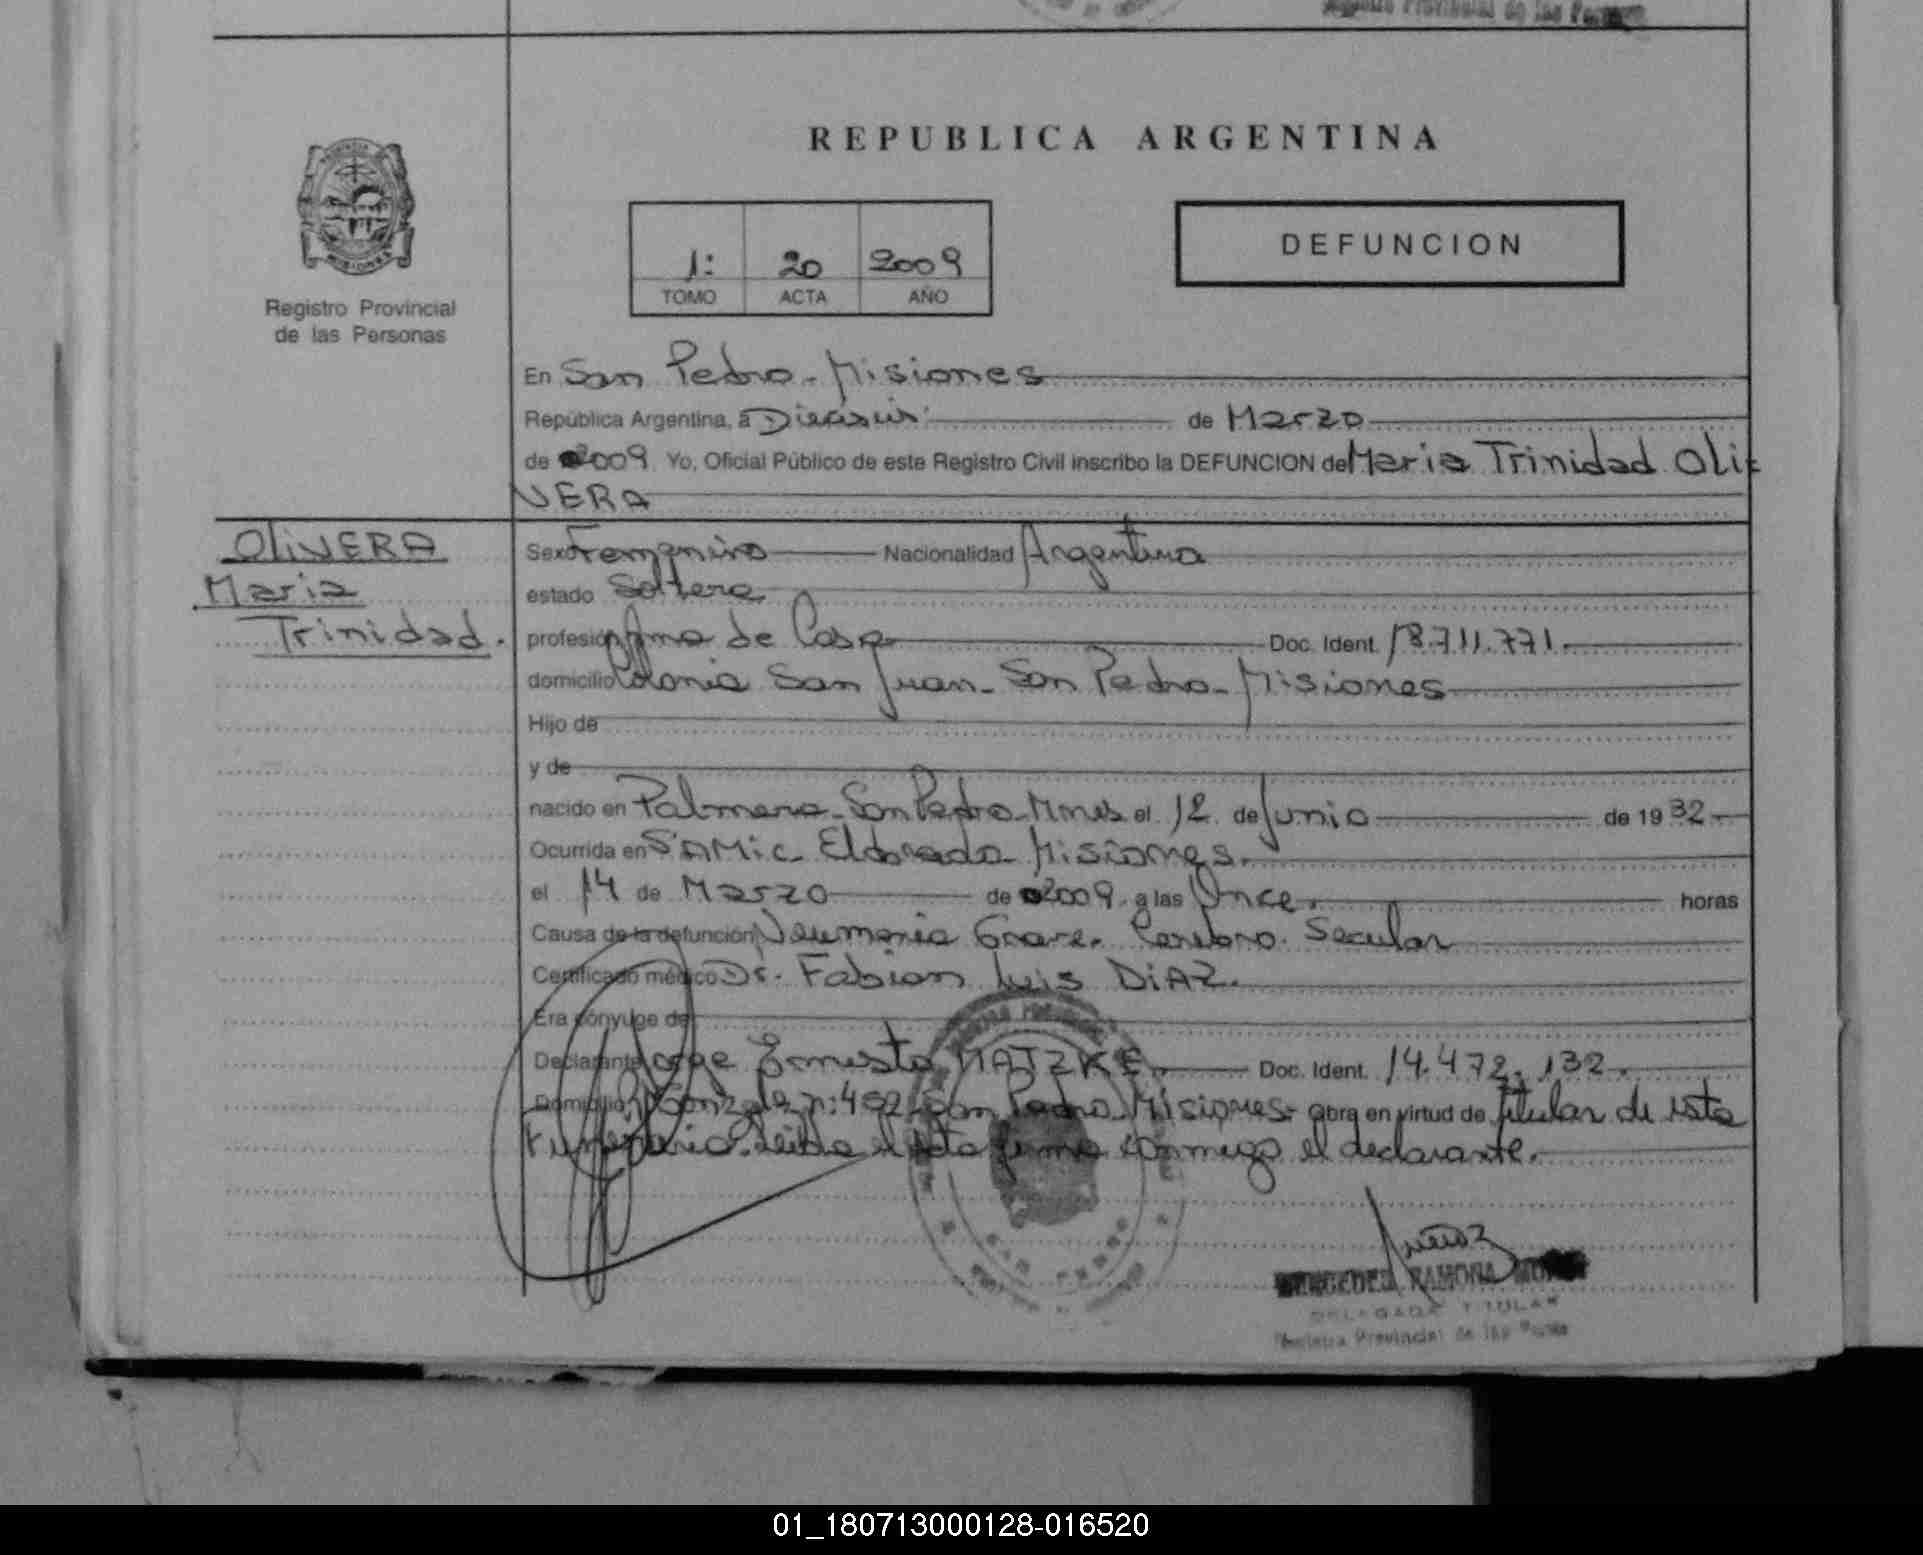 Registro Provincial de las Personas
REPUBLICA ARGENTINA
1: 20 2009
TOMO ACTA AÑO
DEFUNCION
Registro Provincial
de las Personas
En San Pedro - Misiones
República Argentina, a Dieciseis de Marzo
de 2009 Yo, Oficial Público de este Registro Civil inscribo la DEFUNCION de Maria Trinidad Oli-
VERA
OLIVERA
Maria
Trinidad.
Sexo Femenino Nacionalidad Argentina
estado Soltera
profesión Ama de Casa Doc. Ident. 18.711.771.
domicilio Colonia San Juan - San Pedro - Misiones
Hijo de
y de
nacido en Palmera - San Pedro - Mnes el 12 de Junio de 1932
Ocurrida en SAMic - Eldorado - Misiones.
el 14 de Marzo de 2009 a las Once. horas
Causa de la defunción Neumonia Grave. Cerebro. Secular
Certificado médico Dr. Fabian Luis DiAZ.
Era cónyuge de
Declarante Jorge Ernesto MATZKE. Doc. Ident. 14.472.132.
Domicilio Gonzalez n: 452 - San Pedro Misiones - obra en virtud de titular de esta
Funeraria. Leida el acta firma conmigo el declarante.
SAN PEDRO
MERCEDES RAMONA
DELEGADA TITULAR
Registro Provincial de las
01_180713000128-016520